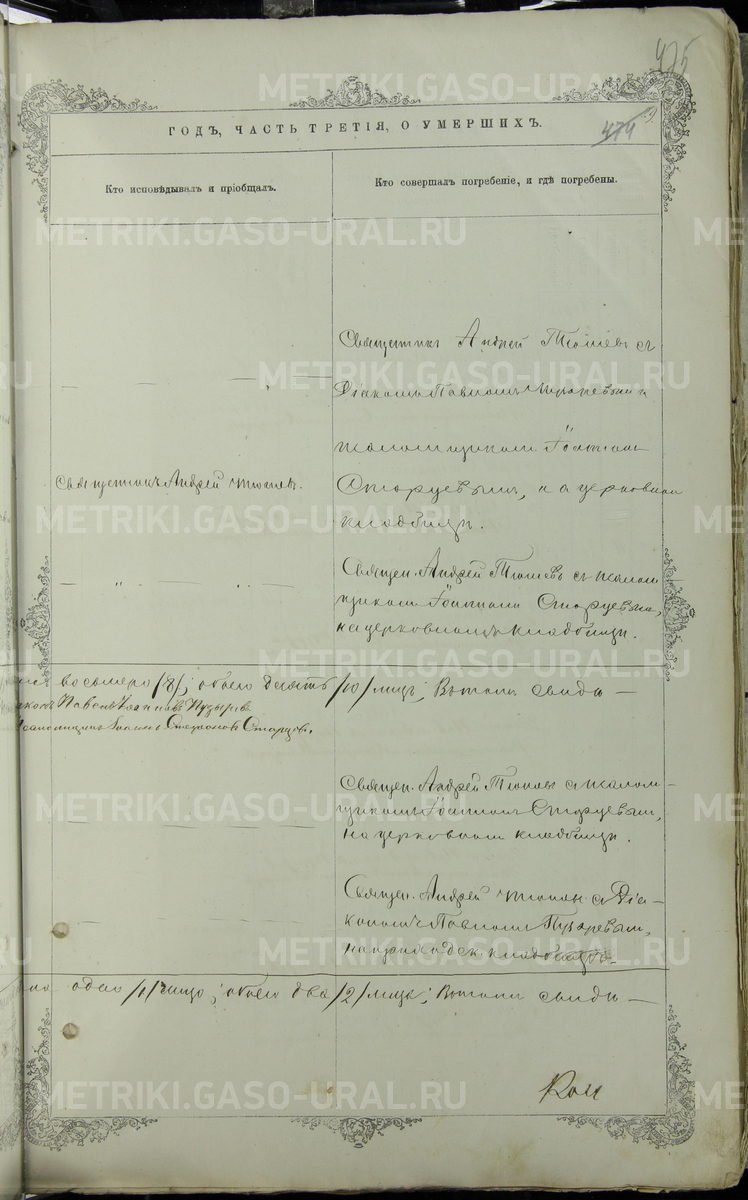 475
474
ГОДЪ, ЧАСТЬ ТРЕТІЯ, О УМЕРШИХЪ.
Кто исповѣдывалъ и пріобщалъ.
Кто совершалъ погребеніе, и гдѣ погребены.
Священникъ Андрей Тюшевъ съ
Діакономъ Павломъ Пузыревымъ и
псаломщикомъ Іоанномъ
Священникъ Андрей Тюшевъ.
Старцевымъ, на церковномъ
кладбищѣ.
Священ. Андрей Тюшевъ съ псалом
щикомъ Іоанномъ Старцевымъ,
на церковномъ кладбищѣ.
восьмеро /8/; обоего десять /10/ лицъ; Въ томъ свидѣ—
Павелъ Іоанновъ Пузыревъ
Псаломщикъ Іоаннъ Стефановъ Старцовъ.
Священ. Андрей Тюшевъ съ псалом—
щикомъ Іоанномъ Старцевымъ,
на церковномъ кладбищѣ.
Священ. Андрей Тюшевъ съ Діа—
кономъ Павломъ Пузыревымъ,
на приходск. кладбищѣ.
одно /1/ лицо; обоего два /2/ лица; Въ томъ свидѣ—
METRIKI.GASO-URAL.RU